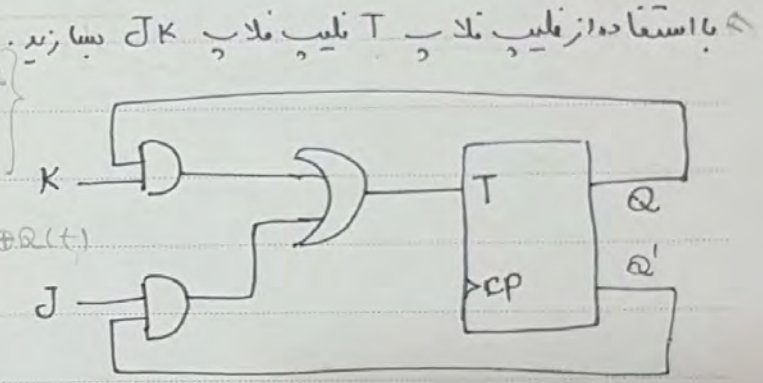 با استفاده از فلیپ فلاپ T فلیپ فلاپ JK بسازید.
K
T
Q
⊕Q(t)
J
CP
Q'